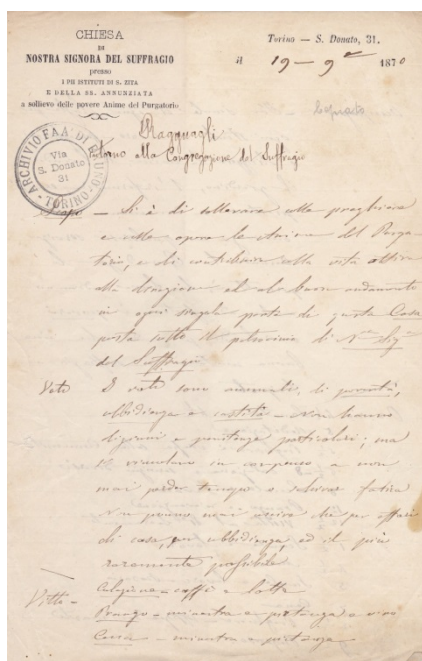 CHIESA
DI
NOSTRA SIGNORA DEL SUFFRAGIO
presso
I PII ISTITUTI DI S. ZITA
E DELLA SS. ANNUNZIATA
a sollievo delle povere Anime del Purgatorio
Torino — S. Donato, 31.
il 19 - 9 1870
Copiato
ARCHIVIO FAA' DI BRUNO - TORINO
Via
S. Donato
31
Ragguagli
intorno alla Congregazione del Suffragio
Scopo — Si è di sollevare colle preghiere
e colle opere le Anime del Purga-
torio, e di contribuire colla vita attiva
alla direzione ed al buon andamento
in ogni singola parte di questa Casa
posta sotto il patrocinio di N.ra Sig.ra
del Suffragio
Voti I voti sono annuali, di povertà,
ubbidienza e castità — Non hanno
digiuni e penitenze particolari; ma
si vincolano in compenso a non
mai perder tempo o schivar fatica
Non possono mai uscire che per affari
di casa, per ubbidienza, ed il più
raramente possibile
Vitto — Colazione - caffè e latte
Pranzo - minestra e pietanza e vino
Cena - minestra e pietanza